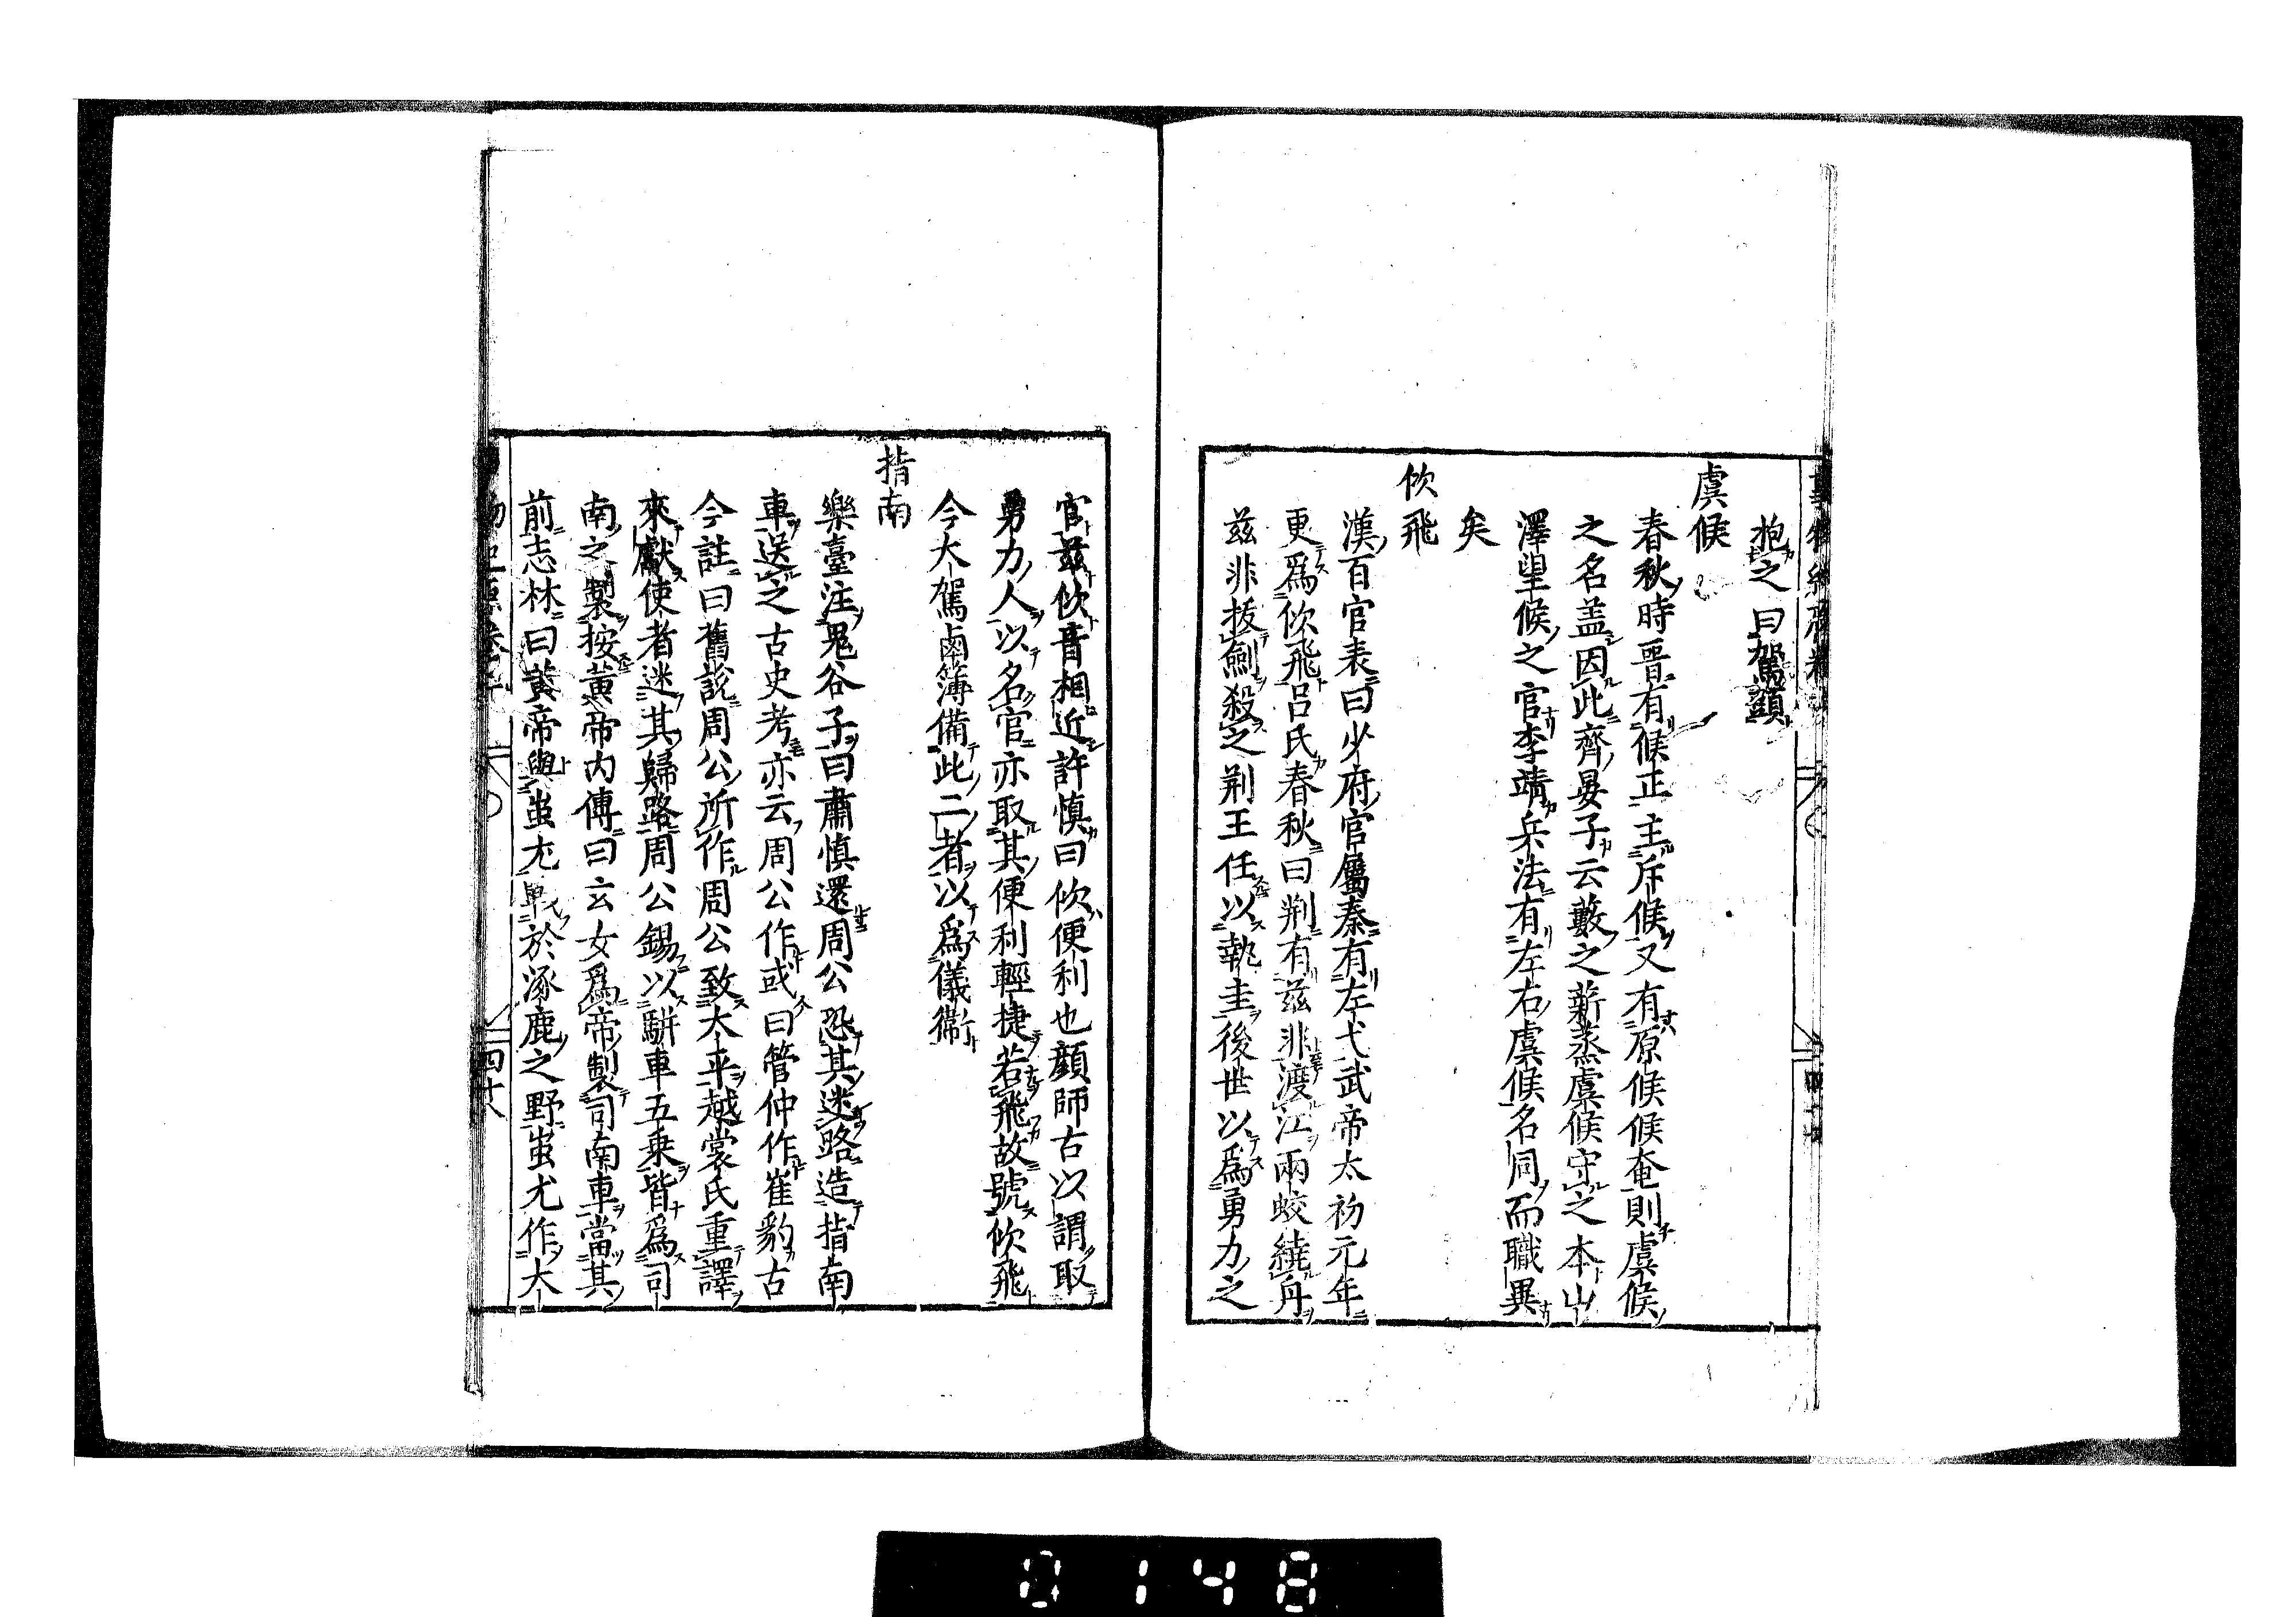 抱之曰駕頭
虞候
春秋時晋有候正主斥候又有原候候奄則虞候
之名盖因此齊晏子云藪之薪蒸虞候守之本山
澤望候之官李靖兵法有左右虞候名同而職異
矣
佽飛
漢百官表曰少府官屬秦有左弋武帝太初元年
更爲佽飛吕氏春秋曰荆有兹非渡江兩蛟繞舟
兹非拔劔殺之荆王任以執圭後世以爲勇力之
官兹佽音相近許慎曰佽便利也顔師古以謂取
勇力人以名官亦取其便利輕捷若飛故號佽飛
今大駕鹵簿備此二者以爲儀衛
指南
樂臺注鬼谷子曰肅慎還周公恐其迷路造指南
車送之古史考亦云周公作或曰管仲作崔豹古
今註曰舊說周公所作周公致太平越裳氏重譯
來獻使者迷其歸路周公錫以駢車五乘皆爲司
南之製按黄帝内傳曰玄女爲帝製司南車當其
前志林曰黄帝與蚩尤戰於涿鹿之野蚩尤作大
四十八
0148